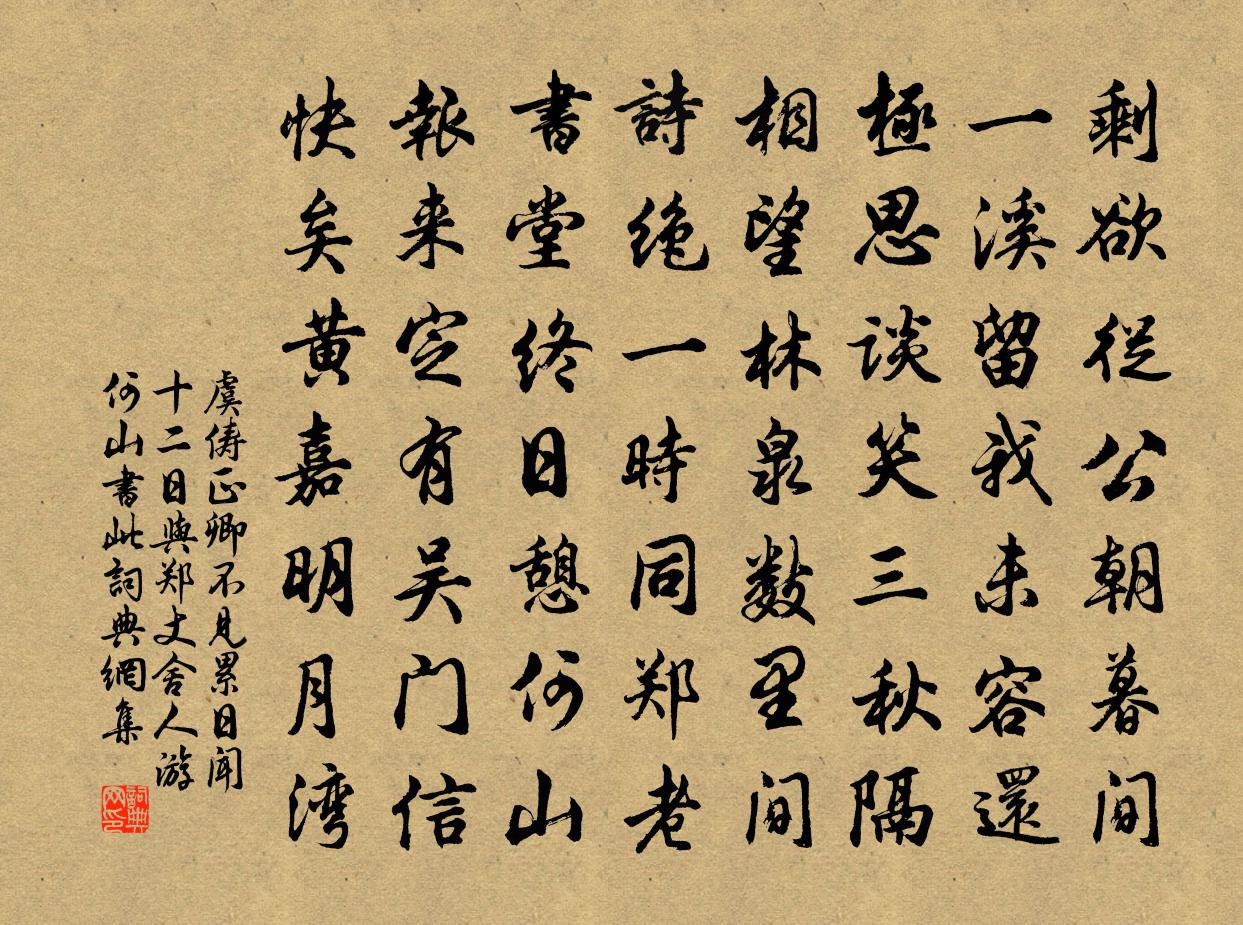 剩欲從公朝暮间
一溪留我未容還
極思談笑三秋隔
相望林泉数里间
詩绝一時同郑老
書堂终日憩何山
報来定有吴门信
快矣黄嘉明月湾
虞俦正卿不见累日闻
十二日與郑丈舍人游
何山書此詞典網集
詞典网印